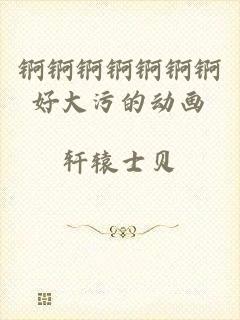 锕锕锕锕锕锕锕
好大污的动画
轩辕士贝